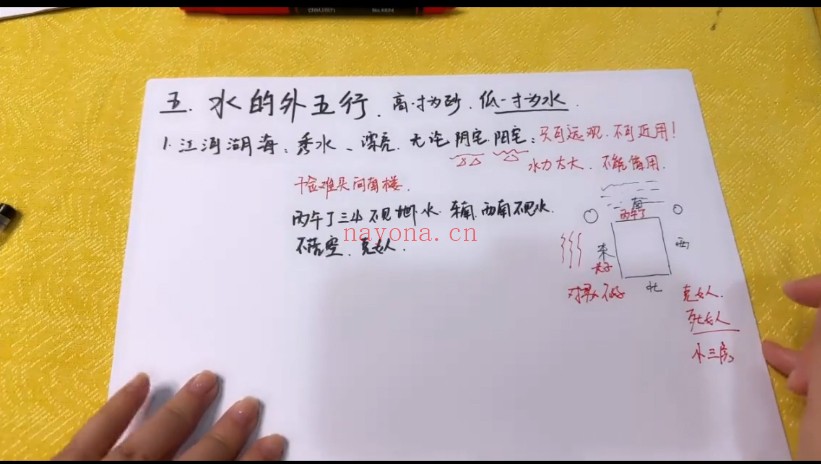 五. 水的外五行. 高一寸为砂. 低一寸为水.
1. 江河湖海: 秀水、漂亮. 无论阴宅.阳宅: 只可远观. 不可近用!
水力太大. 不能借用.
千金难买向南楼.
丙午丁三山不见水. 东南.西南不见水.
不落空. 克女人.
nayona.cn
南
丙午丁
东
西
北
克女人.
死女人
小三房